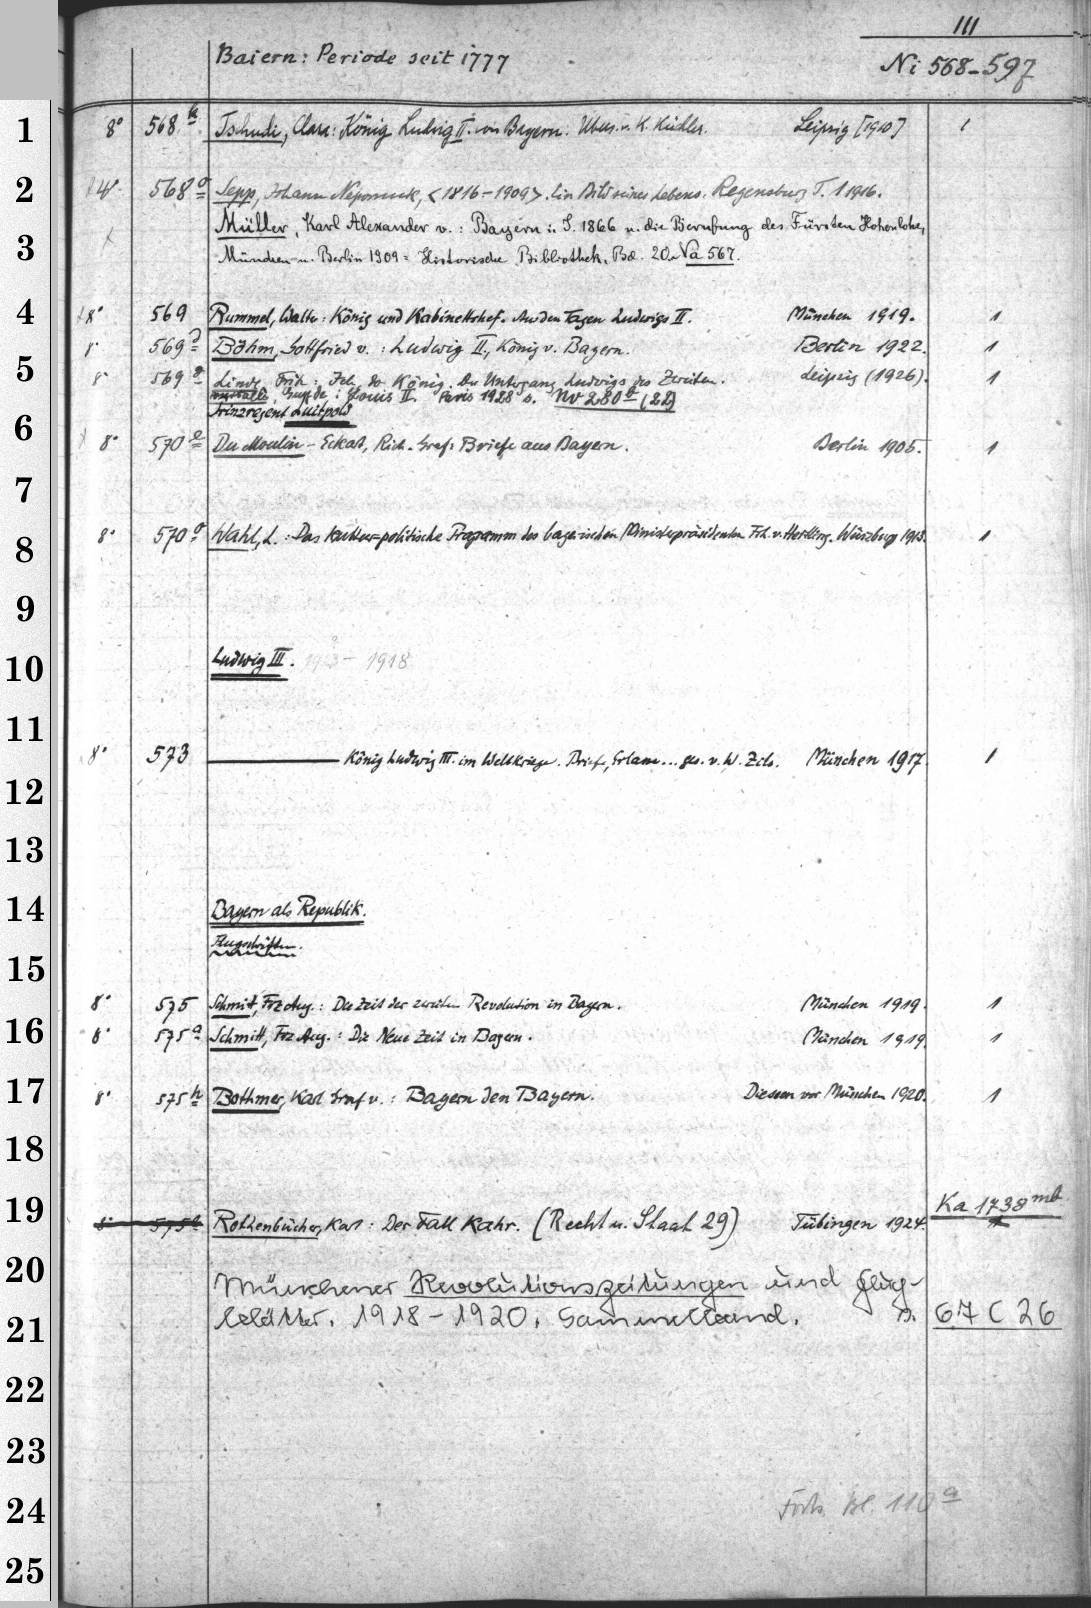 111
Baiern: Periode seit 1777
Ni 568-597
1
8° 568 k Tschudi, Clara: König Ludwig II. von Bayern. Übers. v. K. Küchler. Leipzig [1910] 1
2
4° 568 o Sepp, Johann Nepomuk, <1816-1909>. Ein Bild seines Lebens. Regensburg T. 1 1916.
3
Müller, Karl Alexander v.: Bayern i. J. 1866 u. die Berufung des Fürsten Hohenlohe,
München u. Berlin 1909 = Historische Bibliothek, Bd. 20. Na 567.
4
8° 569 Rummel, Walter: König und Kabinettschef. Aus den Tagen Ludwigs II. München 1919. 1
8° 569 Böhm, Gottfried v.: Ludwig II., König v. Bayern. Berlin 1922. 1
5
8° 569 Linde, Fritz: Ich, der König. Der Untergang Ludwigs des Zweiten. Leipzig (1926). 1
Guy de: Louis II. Paris 1928 s. Nv 280 (22)
Prinzregent Luitpold
6
8° 570 e Du Moulin-Eckart, Rich. Graf: Briefe aus Bayern. Berlin 1905. 1
7
8° 570 o Wahl, L.: Das kultur-politische Programm des bayerischen Ministerpräsidenten Frh. v. Hertling. Würzburg 1913. 1
8
9
10
Ludwig III. 1913-1918
11
8° 573 König Ludwig III. im Weltkriege. Briefe, Erlasse... ges. v. W. Zils. München 1917. 1
12
13
14
Bayern als Republik.
Flugschriften.
15
8° 575 Schmitt, Frz Aug.: Die Zeit der zweiten Revolution in Bayern. München 1919. 1
16
8° 575 a Schmitt, Frz Aug.: Die Neue Zeit in Bayern. München 1919. 1
17
8° 575 h Bothmer, Karl Graf v.: Bayern den Bayern. Diessen vor München 1920. 1
18
19
8° 575 Rothenbücher, Karl: Der Fall Kahr. (Recht u. Staat 29) Tübingen 1924. Ka 1738 mb
20
Münchener Revolutionszeitungen und Flug-
21
blätter. 1918-1920. Sammelband. s. 67 C 26
22
23
24
Forts. Bl. 110 a
25